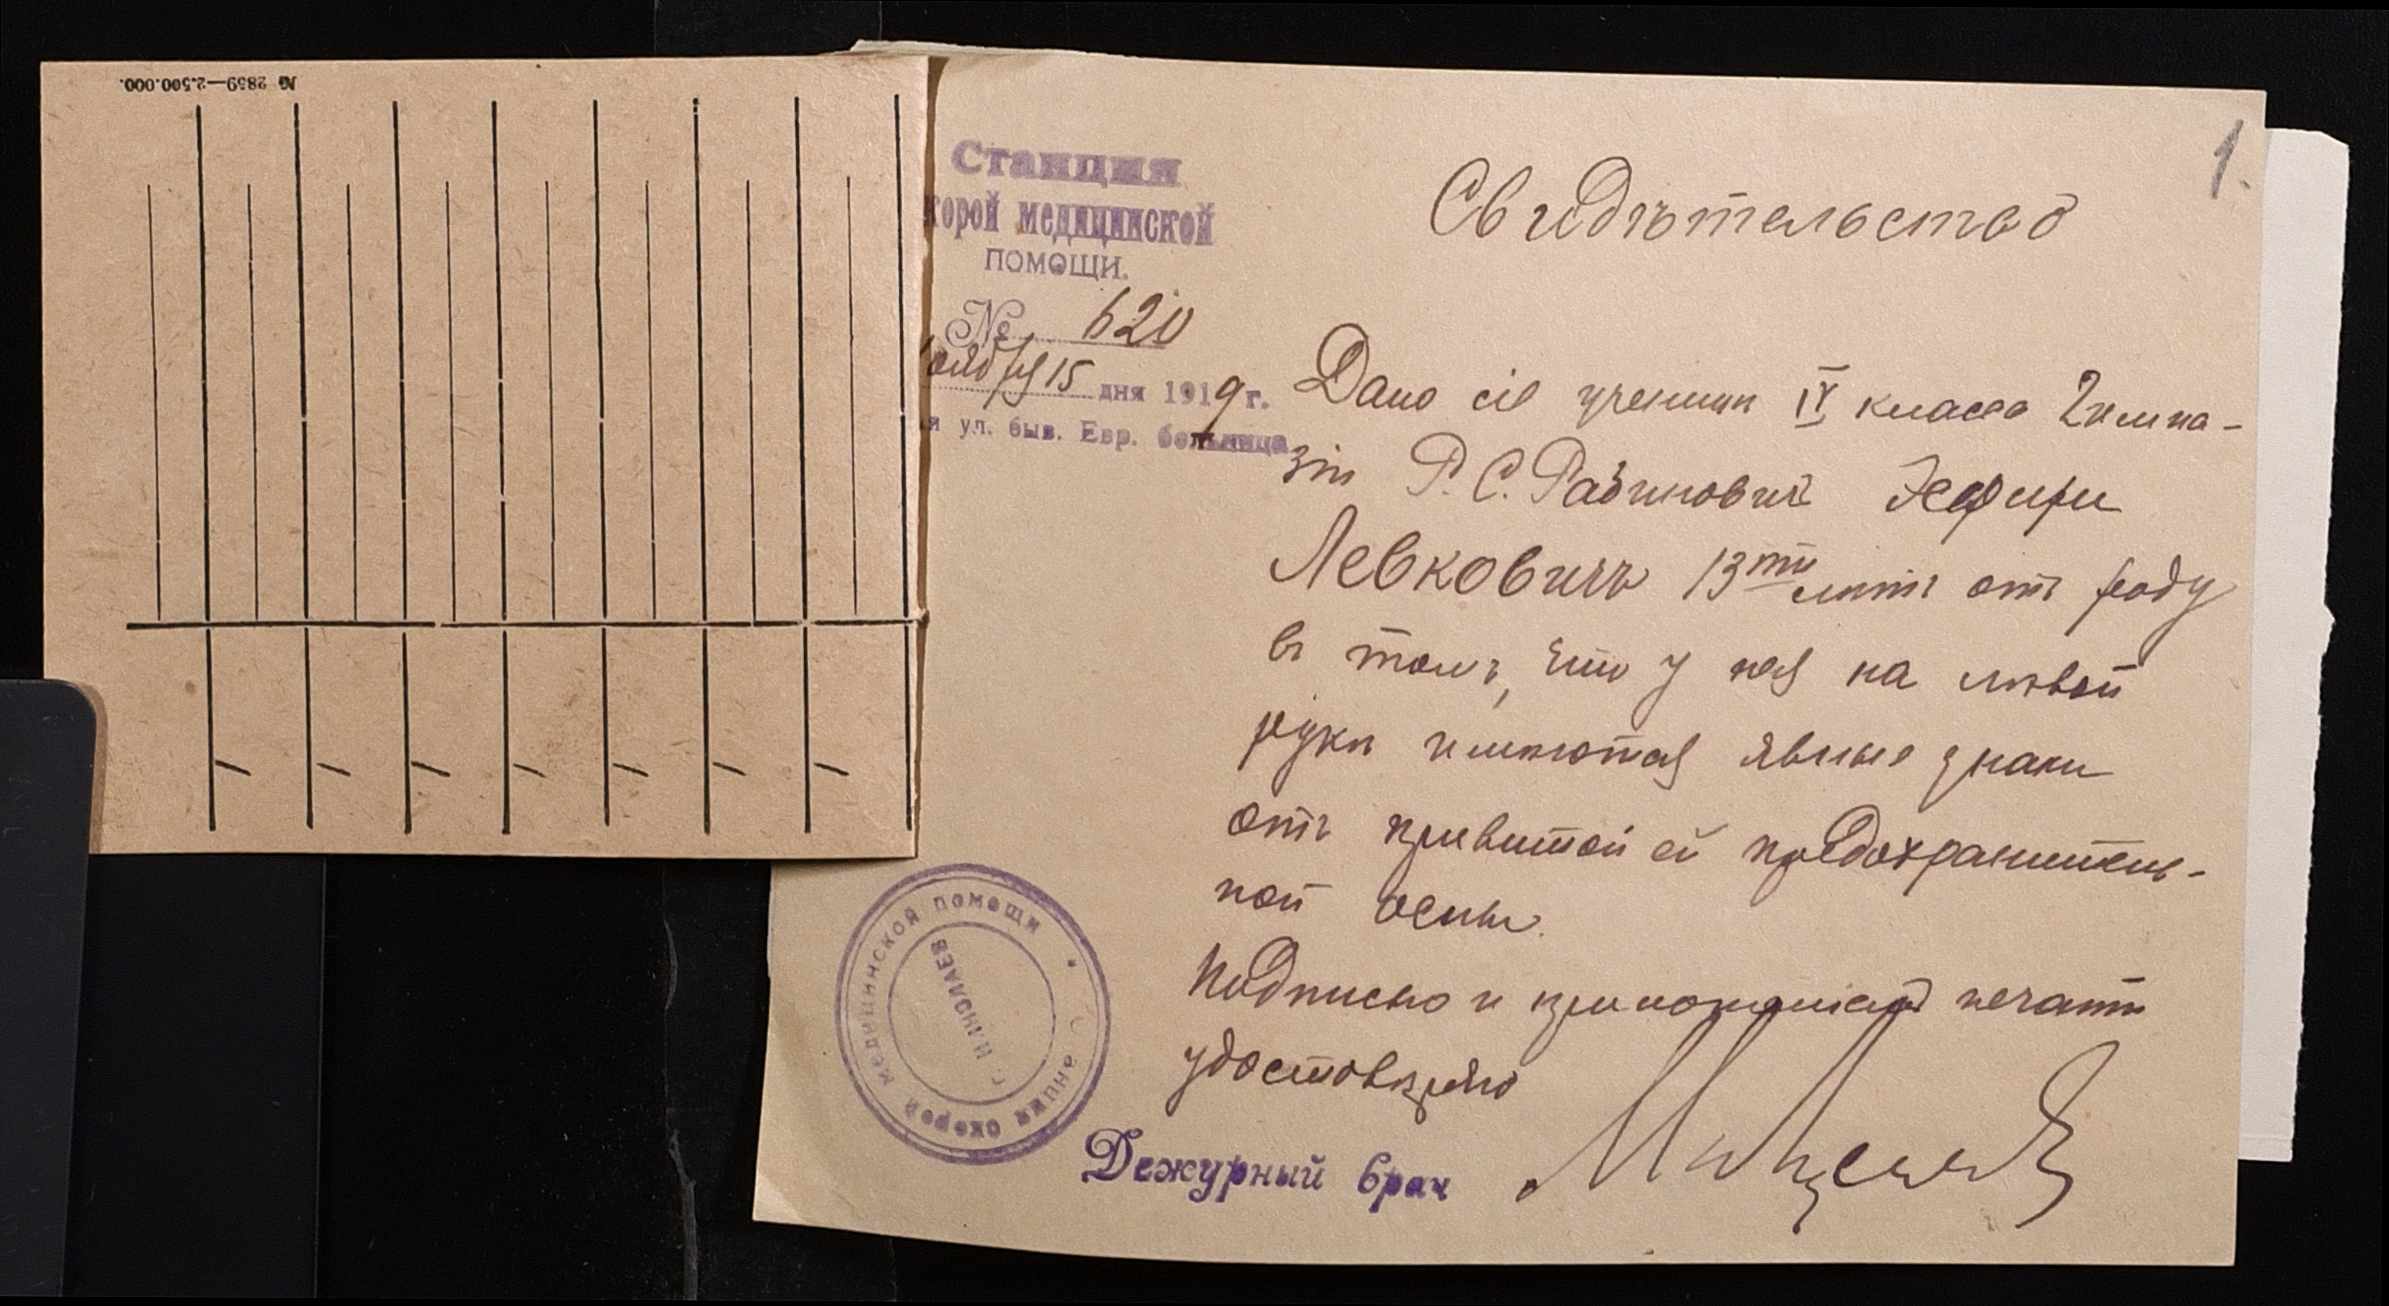 № 2859—2.500.000.
Станция
корой медицинской
ПОМОЩИ.
№ 620
оября 15 дня 1919 г.
я ул. быв. Евр. больница
1.
Свидѣтельство
Дано сіе ученицѣ IV класса Гимна-
зіи Р. С. Рабинович Эсфири
Левковичъ 13ти лѣтъ отъ роду
въ томъ, что у нея на лѣвой
рукѣ имѣются явные знаки
отъ привитой ей предохранитель-
ной оспы.
Подписью и приложеніемъ печати
удостовѣряю
Дежурный врач
анция скорой медицинской помощи
г. НИКОЛАЕВ